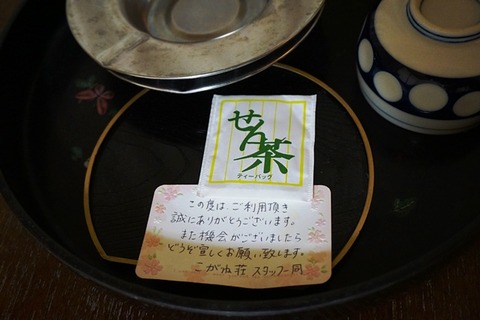 せん茶
ティーバッグ
この度は、ご利用頂き
誠にありがとうございます。
また機会がございましたら
どうぞ宜しくお願い致します。
こがね荘 スタッフ一同